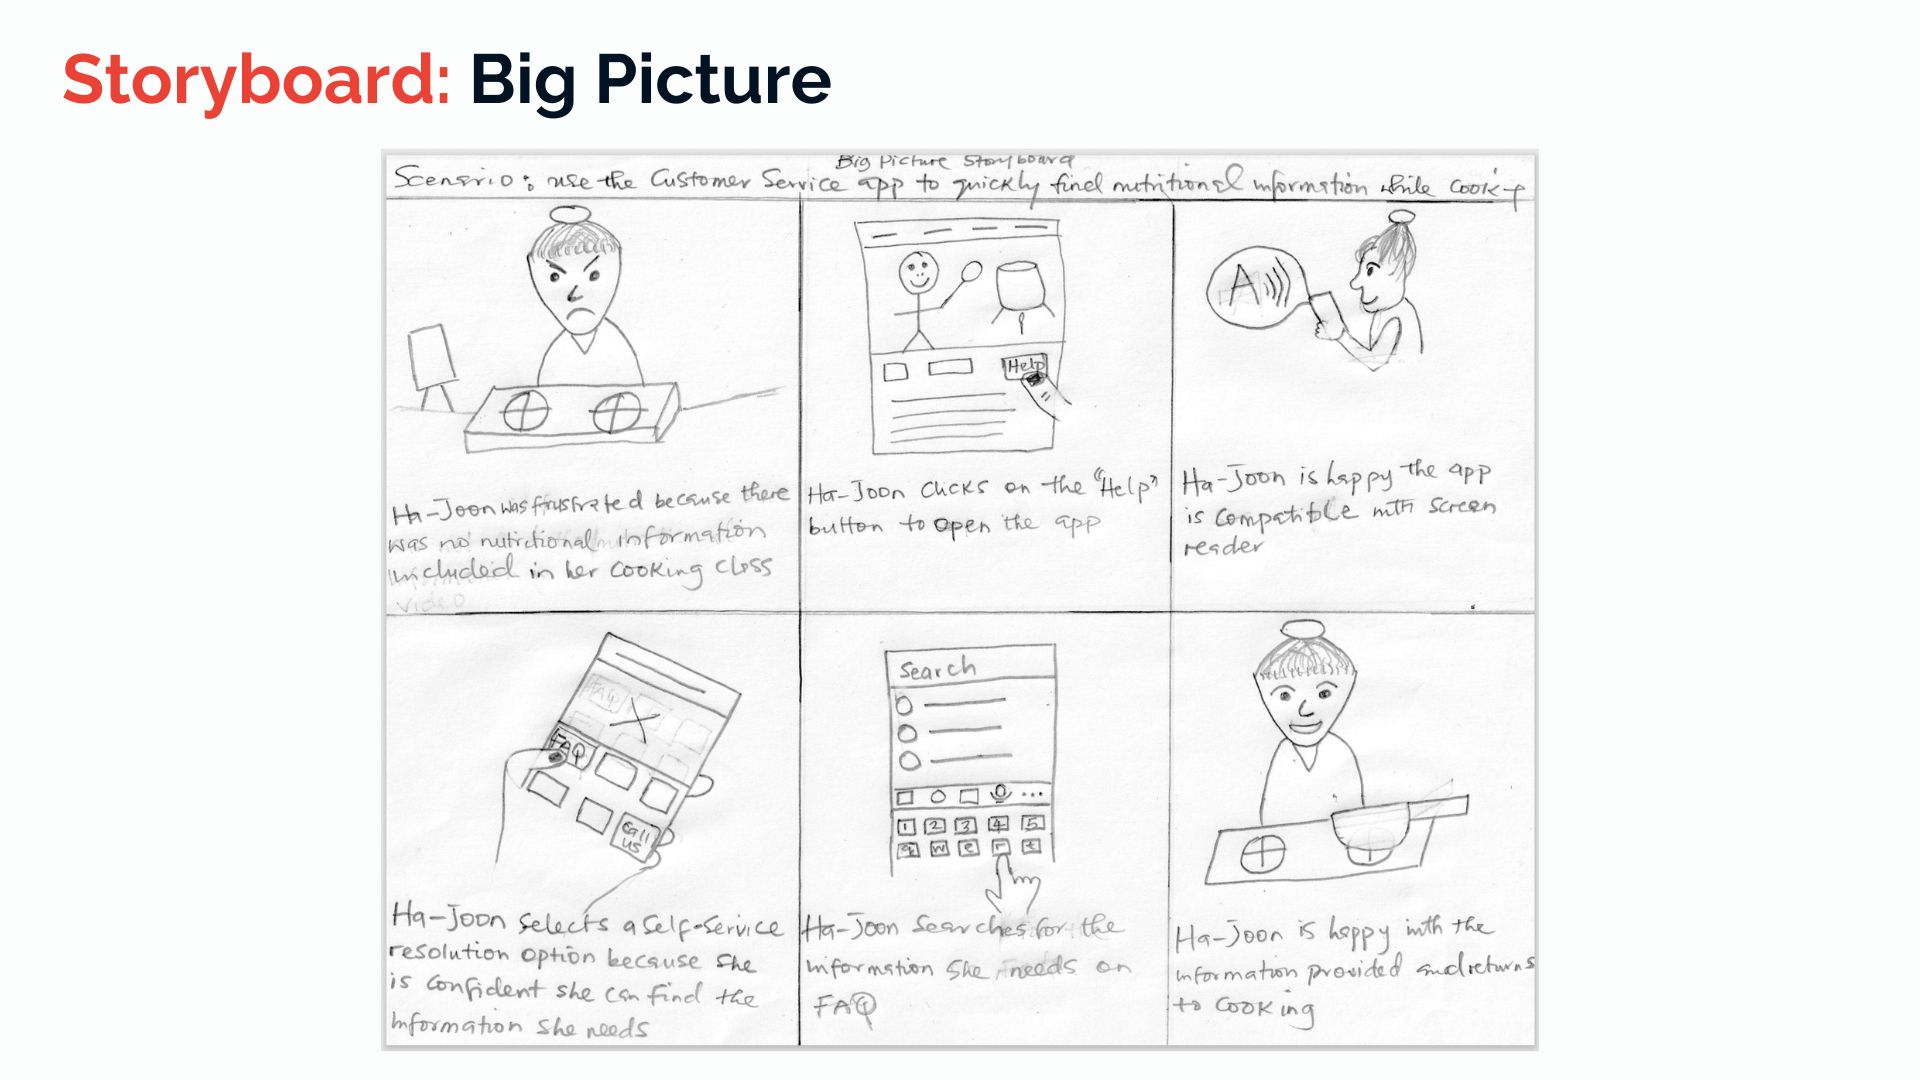 Storyboard: Big Picture
Big Picture Storyboard
Scenario: use the Customer Service app to quickly find nutritional information while
Ha-Joon was frustrated because there
was no nutritional information
included in her cooking class
video
Ha-Joon clicks on the "Help"
button to open the app
Help
A
Ha-Joon is happy the app
is compatible with screen
reader
FAQ
FAQ
Call
us
Ha-Joon selects a self-service
resolution option because she
is confident she can find the
information she needs
Search
...
1 2 3 4 5
q w e r t
Ha-Joon searches for the
information she needs on
FAQ
Ha-Joon is happy with the
information provided and returns
to cooking